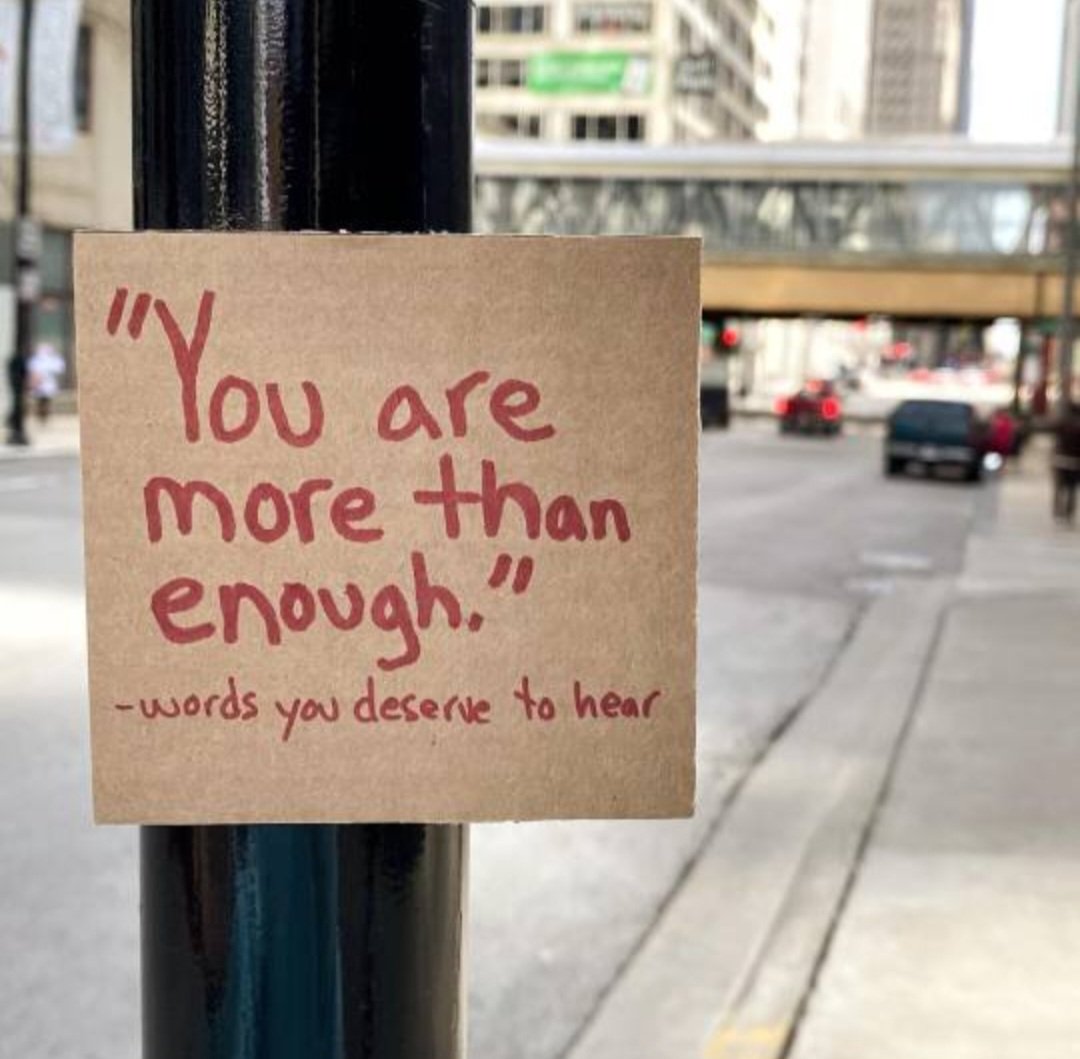 "You are
more than
enough."
-words you deserve to hear